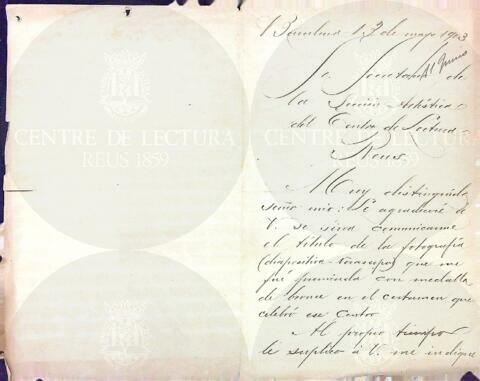 Barcelona 12 de mayo 1903
11 Junio
Sr. Secretario de
la Sección Artística
del Centro de Lectura
Reus
Muy distinguido
señor mio: Le agradeceré de
V. se sirva comunicarme
el título de la fotografía
(diapositiva - verascopo) que me
fué premiada con medalla
de bronce en el certamen que
celebró ese Centro
Al propio tiempo
le suplico á V. me indique
CENTRE DE LECTURA
REUS 1859
CENTRE DE LECTURA
REUS 1859